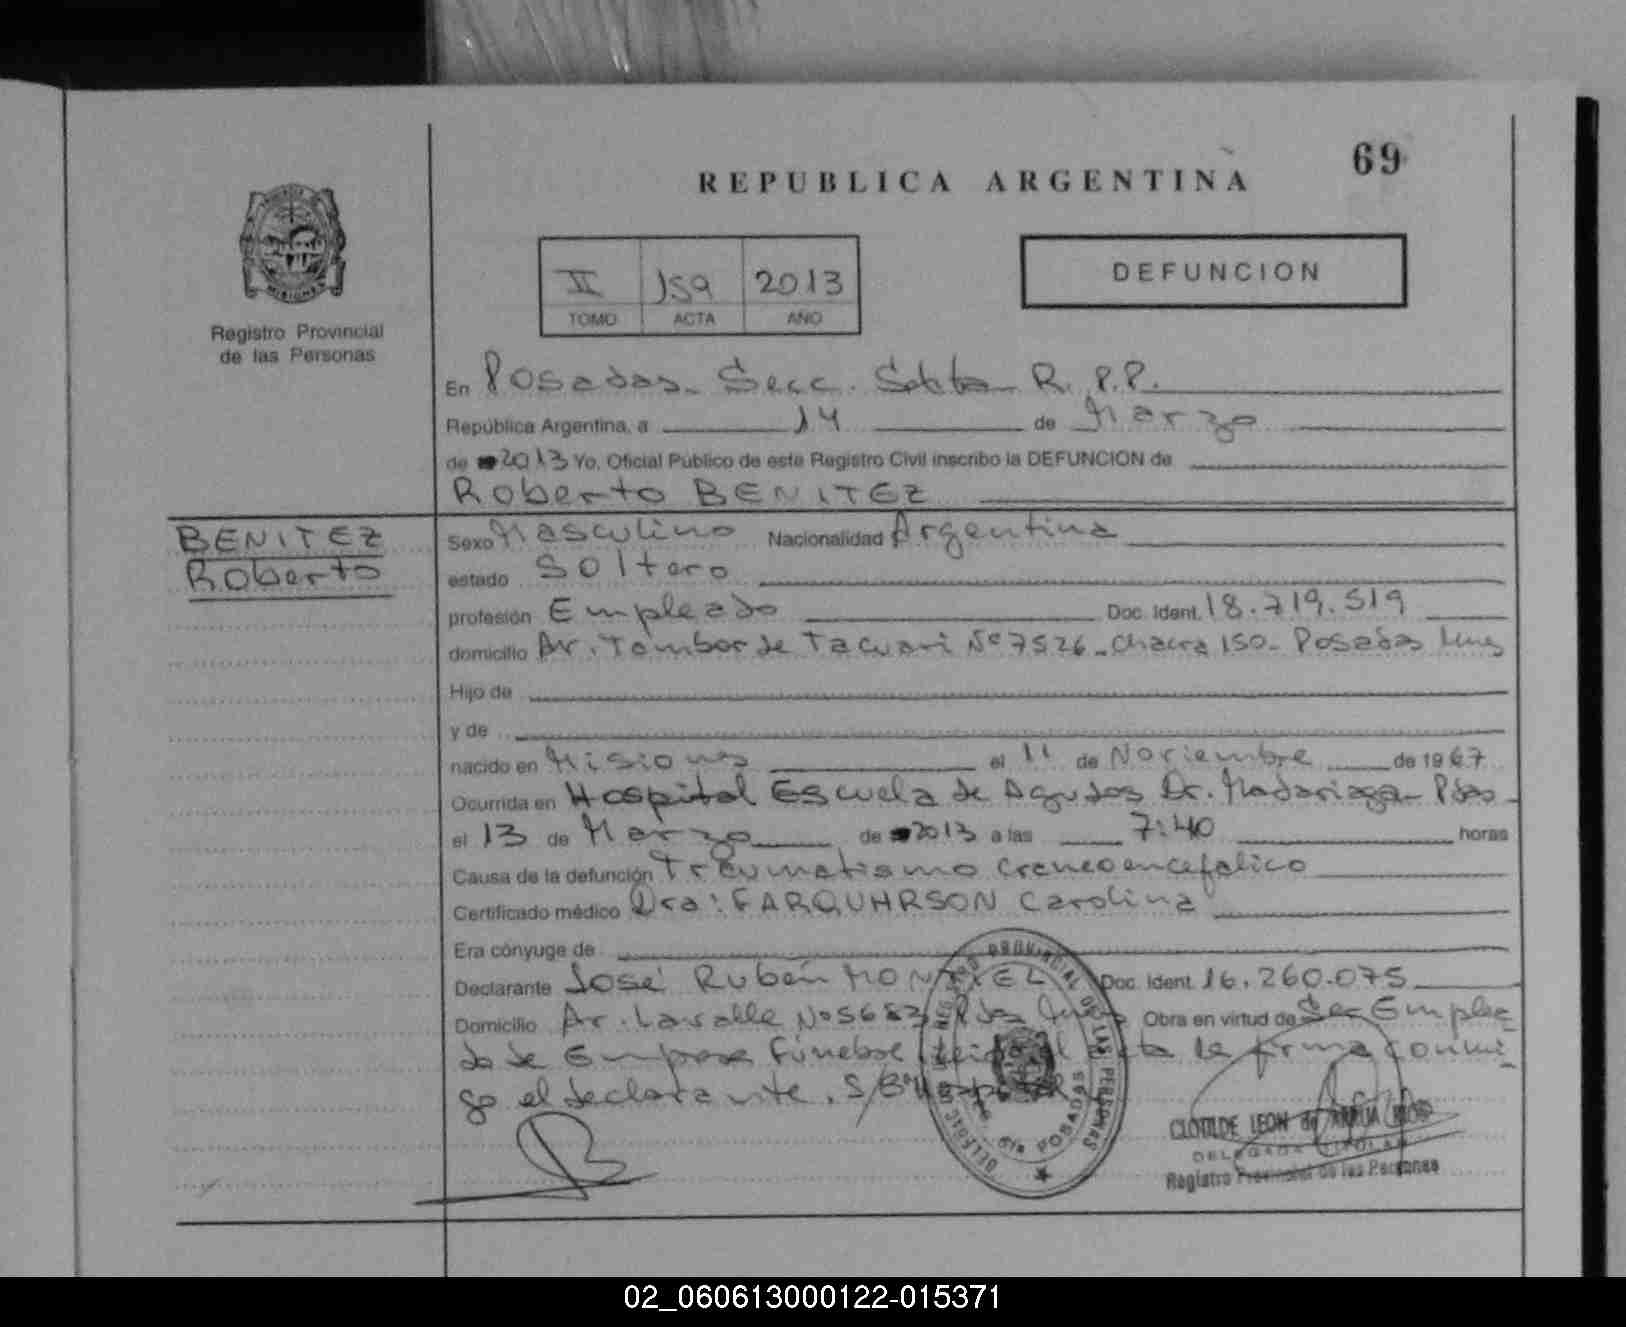 69
REPUBLICA ARGENTINA
MISIONES
Registro Provincial
de las Personas
II 159 2013
TOMO ACTA AÑO
DEFUNCION
En Posadas - Secc. Sexta R.P.P.
República Argentina, a 14 de Marzo
de 2013 Yo, Oficial Público de este Registro Civil inscribo la DEFUNCION de
Roberto BENITEZ
BENITEZ
Roberto
Sexo Masculino Nacionalidad Argentina
estado Soltero
profesión Empleado Doc. Ident. 18.719.519
domicilio Av. Tambor de Tacuari Nº 7526 - Chacra 150 - Posadas Mnes
Hijo de
y de
nacido en Misiones el 11 de Noviembre de 1967
Ocurrida en Hospital Escuela de Agudos Dr. Madariaga - Pdas -
el 13 de Marzo de 2013 a las 7:40 horas
Causa de la defunción Traumatismo craneoencefalico
Certificado médico Dra: FARQUHRSON Carolina
Era cónyuge de
Declarante José Rubén MONTIEL Doc. Ident. 16.260.075
Domicilio Av. Lavalle Nº 5683 Pdas Mnes Obra en virtud de Ser Emplea
do de Empresa Fúnebre leida el acta la firma conmi-
go el declarante. S/B
REGISTRO PROVINCIAL DE LAS PERSONAS
6ta POSADAS
CLOTILDE LEON de
DELEGADA TITULAR
Registro Provincial de las Personas
02_060613000122-015371